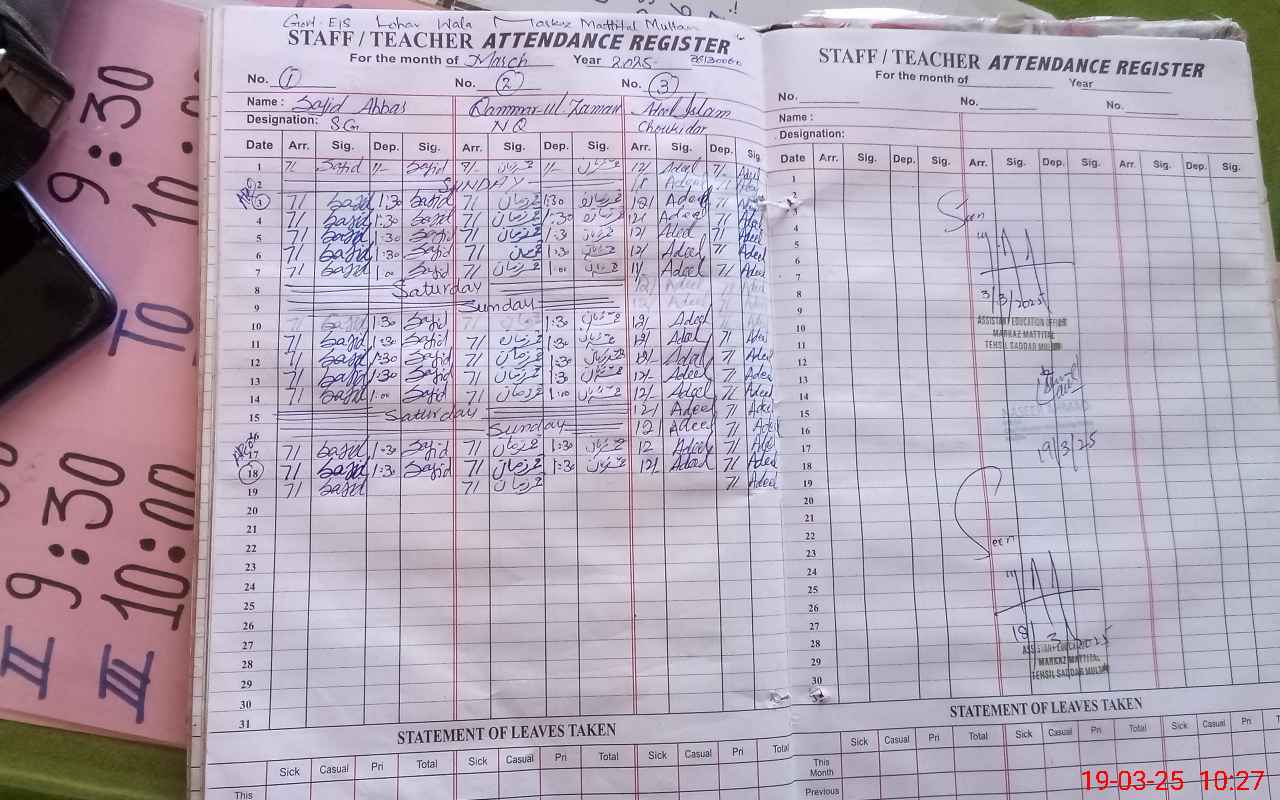 Govt. E/S Lohar Wala Markaz Mattital Multan
STAFF / TEACHER ATTENDANCE REGISTER
For the month of March Year 2025
No. 1 No. 2 No. 3
Name : Sajid Abbas Qammar-ul-Zaman
Designation: NQ Chowkidar
Date Arr. Sig. Dep. Sig. Arr. Sig. Dep. Sig. Arr. Sig. Dep. Sig.
1 7/- Sajid 11/- Sajid 12/ Adeel 7/- Adeel
2 SUNDAY
3 7/ Sajid 1:30 Sajid 7/ قمرزمان 1:30 قمرزمان 12/ Adeel 7/
4 7/ Sajid 1:30 Sajid 7/ قمرزمان 1:30 قمرزمان 12/ Adeel 7/ Adeel
5 7/ Sajid 1:30 Sajid 7/ قمرزمان 1:3 قمرزمان 12/ Adeel 7/ Adeel
6 7/ Sajid 1:30 Sajid 7/ قمرزمان 1:30 قمرزمان 12/ Adeel 7/ Adeel
7 7/ Sajid 1:00 Sajid 7/ قمرزمان 1:00 قمرزمان Adeel 7/ Adeel
8 Saturday 12/ Adeel 7/ Adeel
9 Sunday 12/ Adeel 7/ Adeel
10 7/ Sajid 1:30 Sajid 7/ قمرزمان 1:30 قمرزمان 12/ Adeel 7/ Adeel
11 7/ Sajid 1:30 Sajid 7/ قمرزمان 1:30 قمرزمان 12/ Adeel 7/ Adeel
12 7/ Sajid 1:30 Sajid 7/ قمرزمان 1:30 قمرزمان 12/ Adeel 7/ Adeel
13 7/ Sajid 1:30 Sajid 7/ قمرزمان 1:3 قمرزمان 12/ Adeel 7/ Adeel
14 7/ Sajid 1:00 Sajid 7/ قمرزمان 1:00 قمرزمان 12/ Adeel 7/ Adeel
15 Saturday 12/ Adeel 7/ Adeel
16 Sunday 12/ Adeel 7/ Adeel
17 7/ Sajid 1:30 Sajid 7/ قمرزمان 1:30 قمرزمان 12 Adeel 7/ Adeel
18 7/ Sajid 1:30 Sajid 7/ قمرزمان 1:30 قمرزمان 12/ Adeel 7/ Adeel
19 7/ Sajid 7/ قمرزمان 7/ Adeel
20
21
22
23
24
25
26
27
28
29
30
31
STATEMENT OF LEAVES TAKEN
Sick Casual Pri Total Sick Casual Pri Total
This
STAFF / TEACHER ATTENDANCE REGISTER
For the month of Year
No. No. No.
Name :
Designation:
Date Arr. Sig. Dep. Sig. Arr. Sig. Dep. Sig. Arr. Sig. Dep. Sig.
1
2
3
4
5
6
7
8
9
10
11
12
13
14
15
16
17
18
19
20
21
22
23
24
25
26
27
28
29
30
Seen
3/3/2025
ASSISTANT EDUCATION OFFICER
MARKAZ MATTITAL
TEHSIL SADDAR MULTAN
19/3/25
Seen
18/3/2025
ASSISTANT EDUCATION
MARKAZ MATTITAL
TEHSIL SADDAR MULTAN
STATEMENT OF LEAVES TAKEN
Sick Casual Pri Total Sick Casual Pri Total Sick Casual Pri
This
Month
Previous
9:30
To
10:
II 9:30
III 10:00
19-03-25 10:27